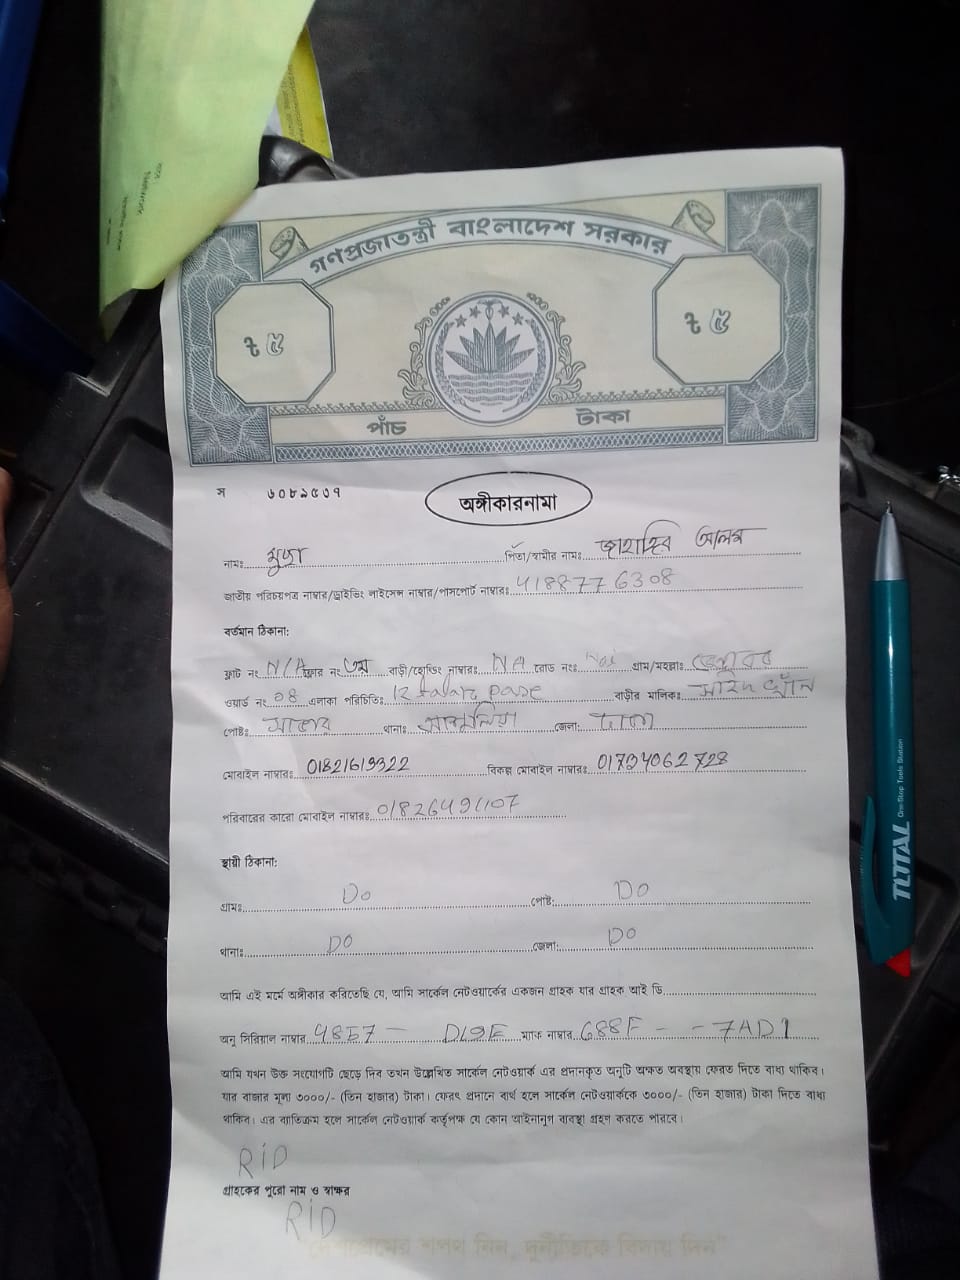 গণপ্রজাতন্ত্রী বাংলাদেশ সরকার
ট ৫ ট ৫
পাঁচ টাকা
স ৬০৮৯৫৩৭
অঙ্গীকারনামা
নামঃ পিতা/স্বামীর নামঃ জাহাঙ্গির আলম
জাতীয় পরিচয়পত্র নাম্বার/ড্রাইভিং লাইসেন্স নাম্বার/পাসপোর্ট নাম্বারঃ 4188776308
বর্তমান ঠিকানা:
ফ্লাট নং N/A ফ্লোর নং ৩য় বাড়ী/হোল্ডিং নাম্বারঃ NA রোড নংঃ গ্রাম/মহল্লাঃ
ওয়ার্ড নং 08 এলাকা পরিচিতিঃ 12 বাড়ীর মালিকঃ খাঁন
পোষ্টঃ সাভার থানাঃ আশুলিয়া জেলা: ঢাকা
মোবাইল নাম্বারঃ 01821619322 বিকল্প মোবাইল নাম্বারঃ 01734062728
পরিবারের কারো মোবাইল নাম্বারঃ
স্থায়ী ঠিকানা:
গ্রামঃ Do পোষ্ট: Do
থানাঃ DO জেলা: DO
আমি এই মর্মে অঙ্গীকার করিতেছি যে, আমি সার্কেল নেটওয়ার্কের একজন গ্রাহক যার গ্রাহক আই ডি
অনু সিরিয়াল নাম্বার 4857 - D19E ম্যাক নাম্বার 688F - - 7AD1
আমি যখন উক্ত সংযোগটি ছেড়ে দিব তখন উল্লেখিত সার্কেল নেটওয়ার্ক এর প্রদানকৃত অনুটি অক্ষত অবস্থায় ফেরত দিতে বাধ্য থাকিব।
যার বাজার মূল্য ৩০০০/- (তিন হাজার) টাকা। ফেরৎ প্রদানে ব্যর্থ হলে সার্কেল নেটওয়ার্ককে ৩০০০/- (তিন হাজার) টাকা দিতে বাধ্য
থাকিব। এর ব্যতিক্রম হলে সার্কেল নেটওয়ার্ক কর্তৃপক্ষ যে কোন আইনানুগ ব্যবস্থা গ্রহণ করতে পারবে।
RiD
গ্রাহকের পুরো নাম ও স্বাক্ষর
RiD
"দেশপ্রেমের শপথ নিন, দুর্নীতিকে বিদায় দিন"
TOTAL
One-Stop Tools Station